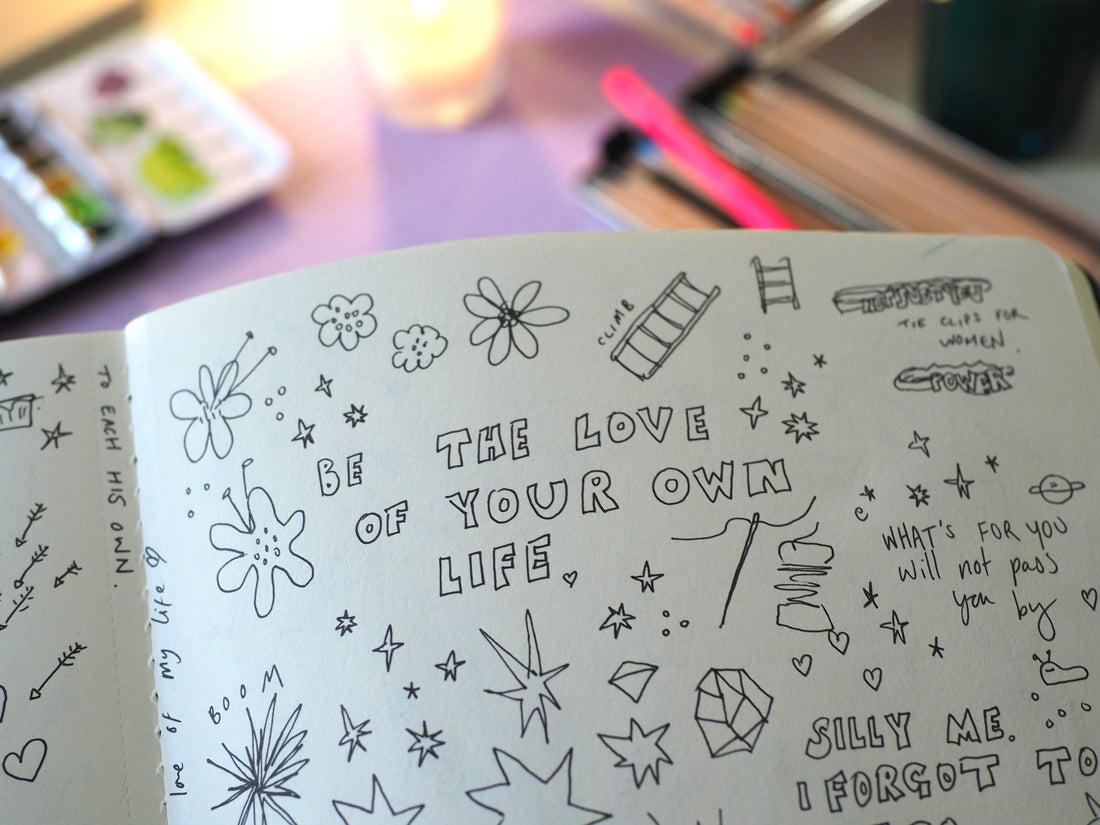 TO EACH HIS OWN.
love of my life
CLIMB
TIE CLIPS FOR
WOMEN.
POWER
BE THE LOVE
OF YOUR OWN
LIFE.
WHAT'S FOR YOU
will not pass
you by
BOOM
SILLY ME.
I FORGOT TO